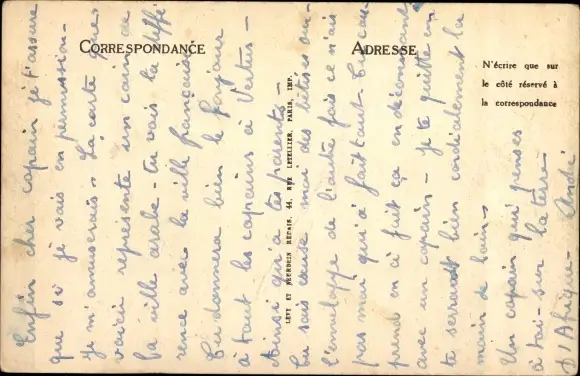 CORRESPONDANCE
ADRESSE
N'écrire que sur
le côté réservé à
la correspondance
LEVY ET NEURDEIN RÉUNIS, 44, RUE LETELLIER, PARIS, IMP.
Enfin cher copain je t'assure
que si je vais en permission
je m'amuserais. La carte que
voici représente un coin de
la ville arabe - tu vois la diffé
rence avec la ville française
Tu donnera bien le bonjour
à tout les copains à Vertus -
Ainsi qu'a tes parents -
Tu sais cause moi des bêtises sur
l'enveloppe de l'autre fois ce n'ais
pas moi qu'a fait tout. Tu com
prend on ci fait ça en déconnant
avec un copain - Je te quitte en
te serrandt bien cordialement la
main de loin -
Un copain qui penses
à toi - sur la terre
D'Afrique - André